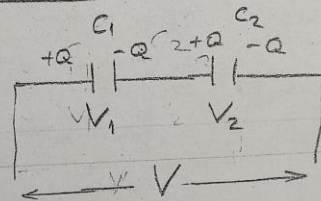 C₁ C₂
+Q -Q +Q -Q
V₁ V₂
V